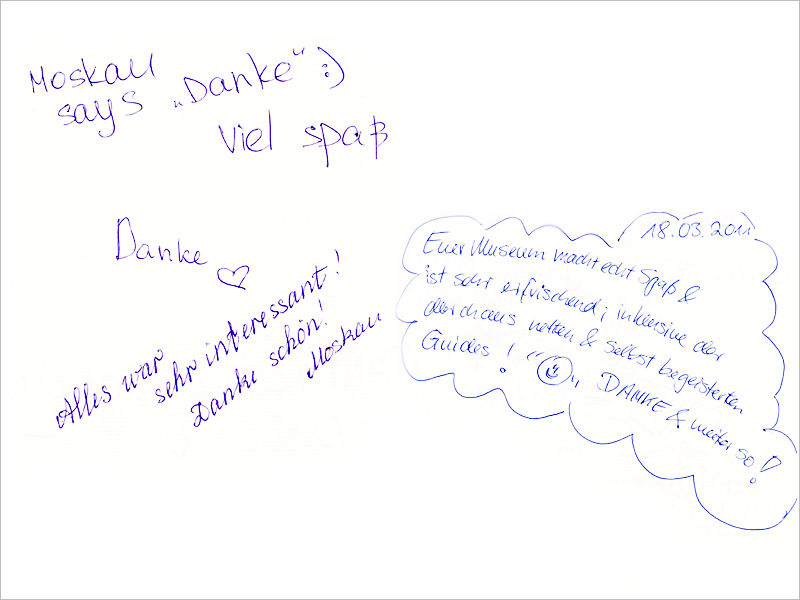 Moskau
says „Danke“ :)
viel spaß
Danke ♡
Alles war
sehr interessant!
Danke schön!
Moskau
18.03.2011
Euer Museum macht echt Spaß &
ist sehr erfrischend; inklusive der
durchaus netten & selbst begeisterten
Guides! “☺„ DANKE & weiter so!